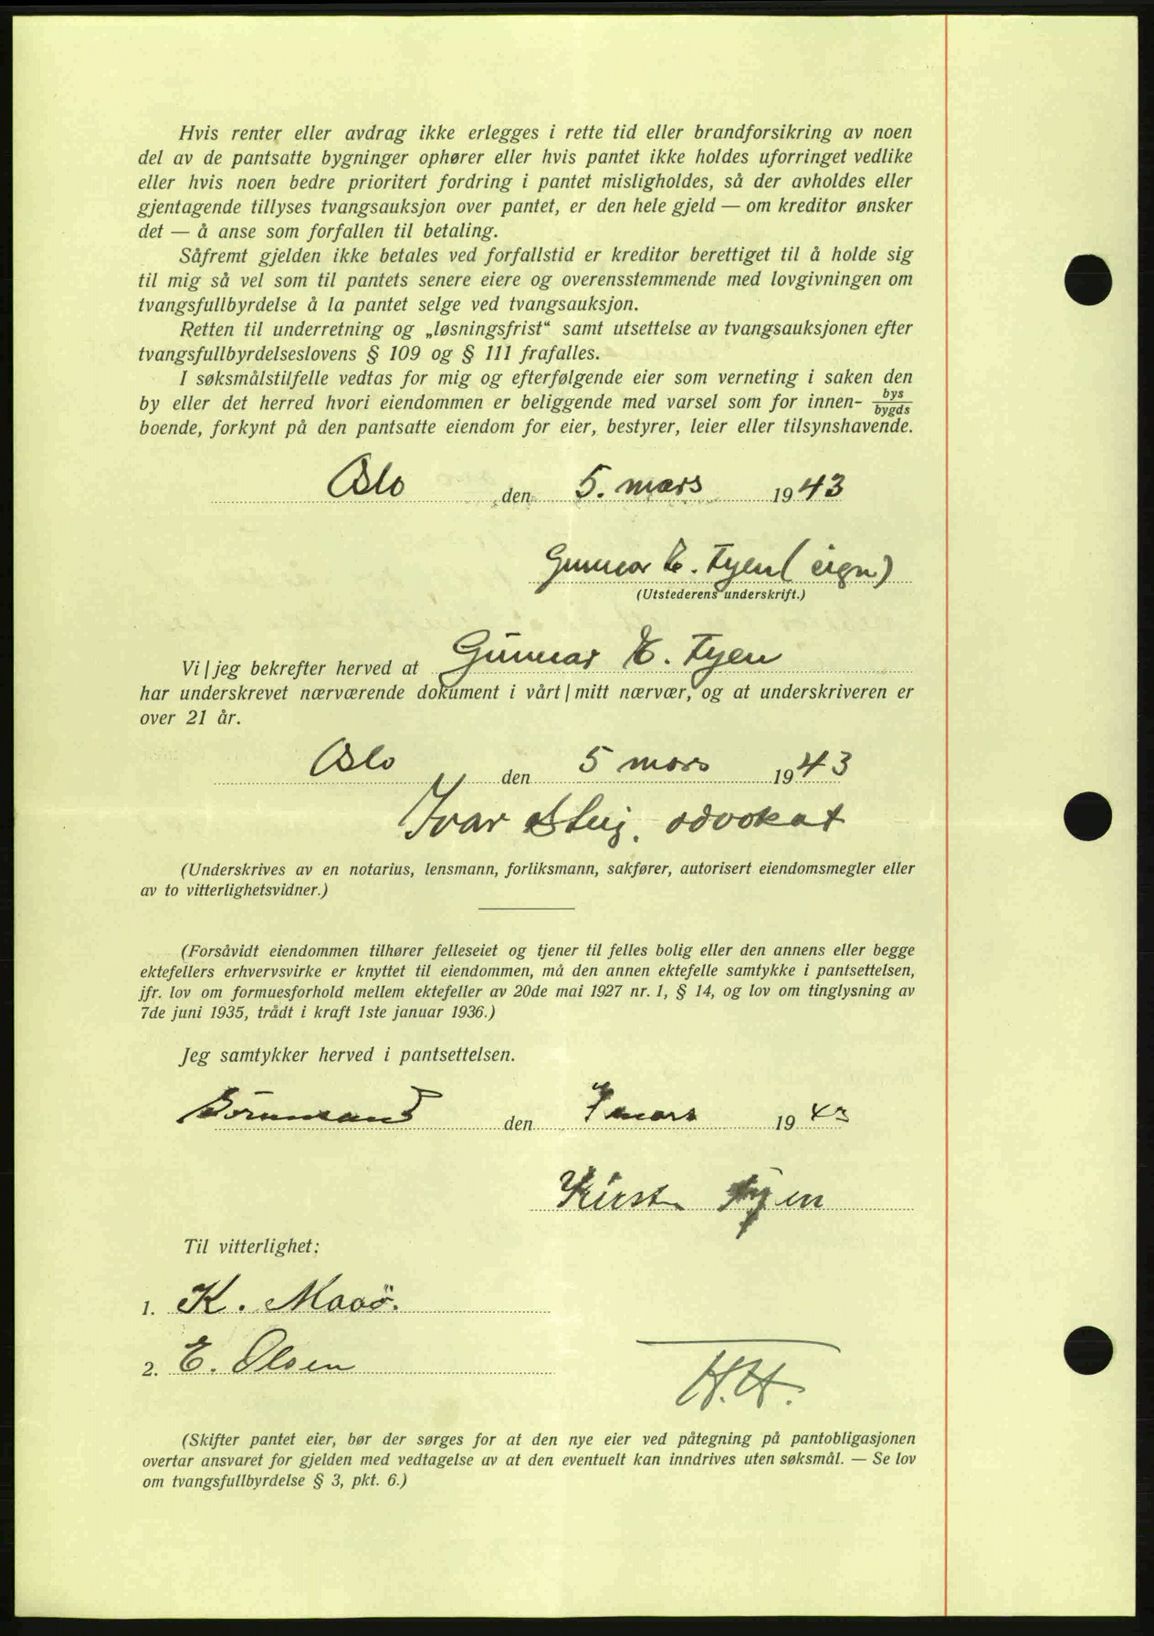 Hvis renter eller avdrag ikke erlegges i rette tid eller brandforsikring av noen
del av de pantsatte bygninger ophører eller hvis pantet ikke holdes uforringet vedlike
eller hvis noen bedre prioritert fordring i pantet misligholdes, så der avholdes eller
gjentagende tillyses tvangsauksjon over pantet, er den hele gjeld — om kreditor ønsker
det — å anse som forfallen til betaling.
Såfremt gjelden ikke betales ved forfallstid er kreditor berettiget til å holde sig
til mig så vel som til pantets senere eiere og overensstemmende med lovgivningen om
tvangsfullbyrdelse å la pantet selge ved tvangsauksjon.
Retten til underretning og „løsningsfrist“ samt utsettelse av tvangsauksjonen efter
tvangsfullbyrdelseslovens § 109 og § 111 frafalles.
I søksmålstilfelle vedtas for mig og efterfølgende eier som verneting i saken den
by eller det herred hvori eiendommen er beliggende med varsel som for innen- bys/bygds
boende, forkynt på den pantsatte eiendom for eier, bestyrer, leier eller tilsynshavende.
Oslo den 5. mars 1943
Gunnar E. Fyen (sign)
(Utstederens underskrift.)
Vi / jeg bekrefter herved at Gunnar E. Fyen
har underskrevet nærværende dokument i vårt / mitt nærvær, og at underskriveren er
over 21 år.
Oslo den 5 mars 1943
Ivar advokat
(Underskrives av en notarius, lensmann, forliksmann, sakfører, autorisert eiendomsmegler eller
av to vitterlighetsvidner.)
(Forsåvidt eiendommen tilhører felleseiet og tjener til felles bolig eller den annens eller begge
ektefellers erhvervsvirke er knyttet til eiendommen, må den annen ektefelle samtykke i pantsettelsen,
jfr. lov om formuesforhold mellem ektefeller av 20de mai 1927 nr. 1, § 14, og lov om tinglysning av
7de juni 1935, trådt i kraft 1ste januar 1936.)
Jeg samtykker herved i pantsettelsen.
den 7 mars 1943
Kirsten Fyen
Til vitterlighet:
1. K. Maaö.
2. E. Olsen
H.H.
(Skifter pantet eier, bør der sørges for at den nye eier ved påtegning på pantobligasjonen
overtar ansvaret for gjelden med vedtagelse av at den eventuelt kan inndrives uten søksmål. — Se lov
om tvangsfullbyrdelse § 3, pkt. 6.)